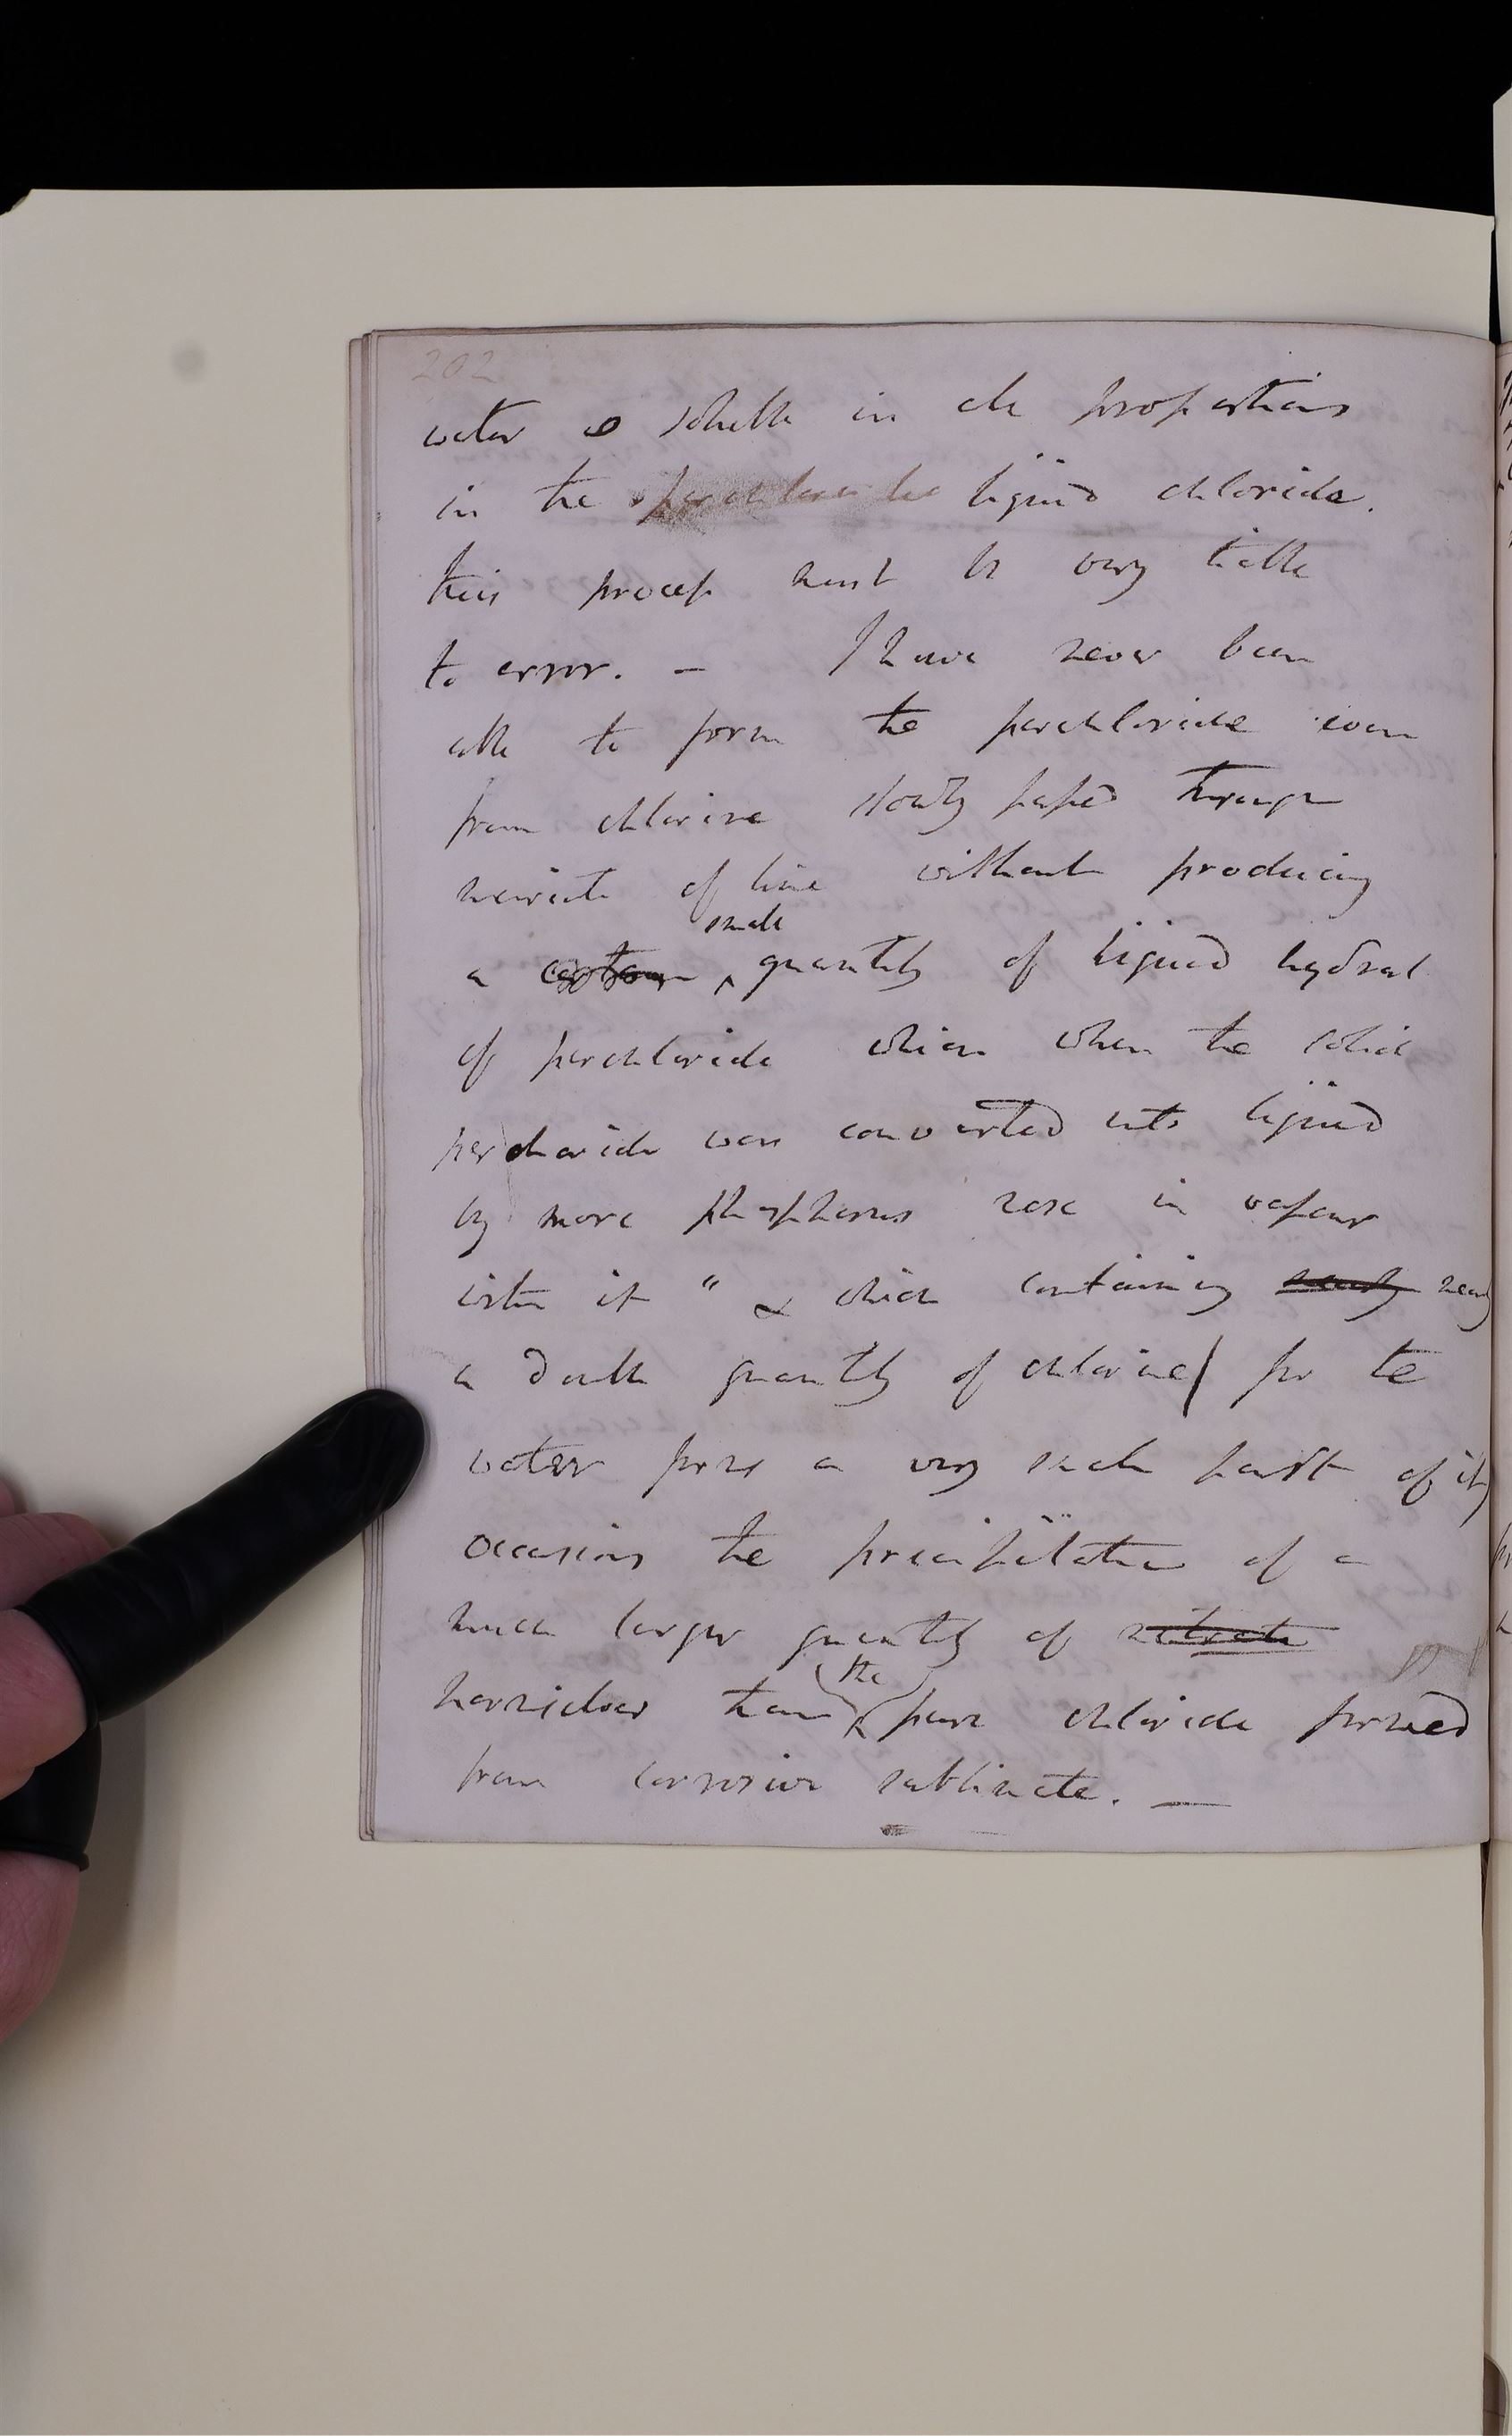 202
water is soluble in all proportions
in the perchloride liquid chloride.
this process must be very liable
to error. – I have never been
able to form the perchloride even
from chlorine slowly passed through
muriate of lime without producing
a certain small quantity of liquid hydrat
of perchloride which when the solid
perchloride was converted into liquid
by more phosphorus rose in vapour
with it " & which containing nearly nearly
a double quantity of chlorine/ for the
water forms a very small part of it)
occasions the precipitation of a
much larger quantity of nitrate
hornsilver than (the) pure chloride formed
from corrosive sublimate. —